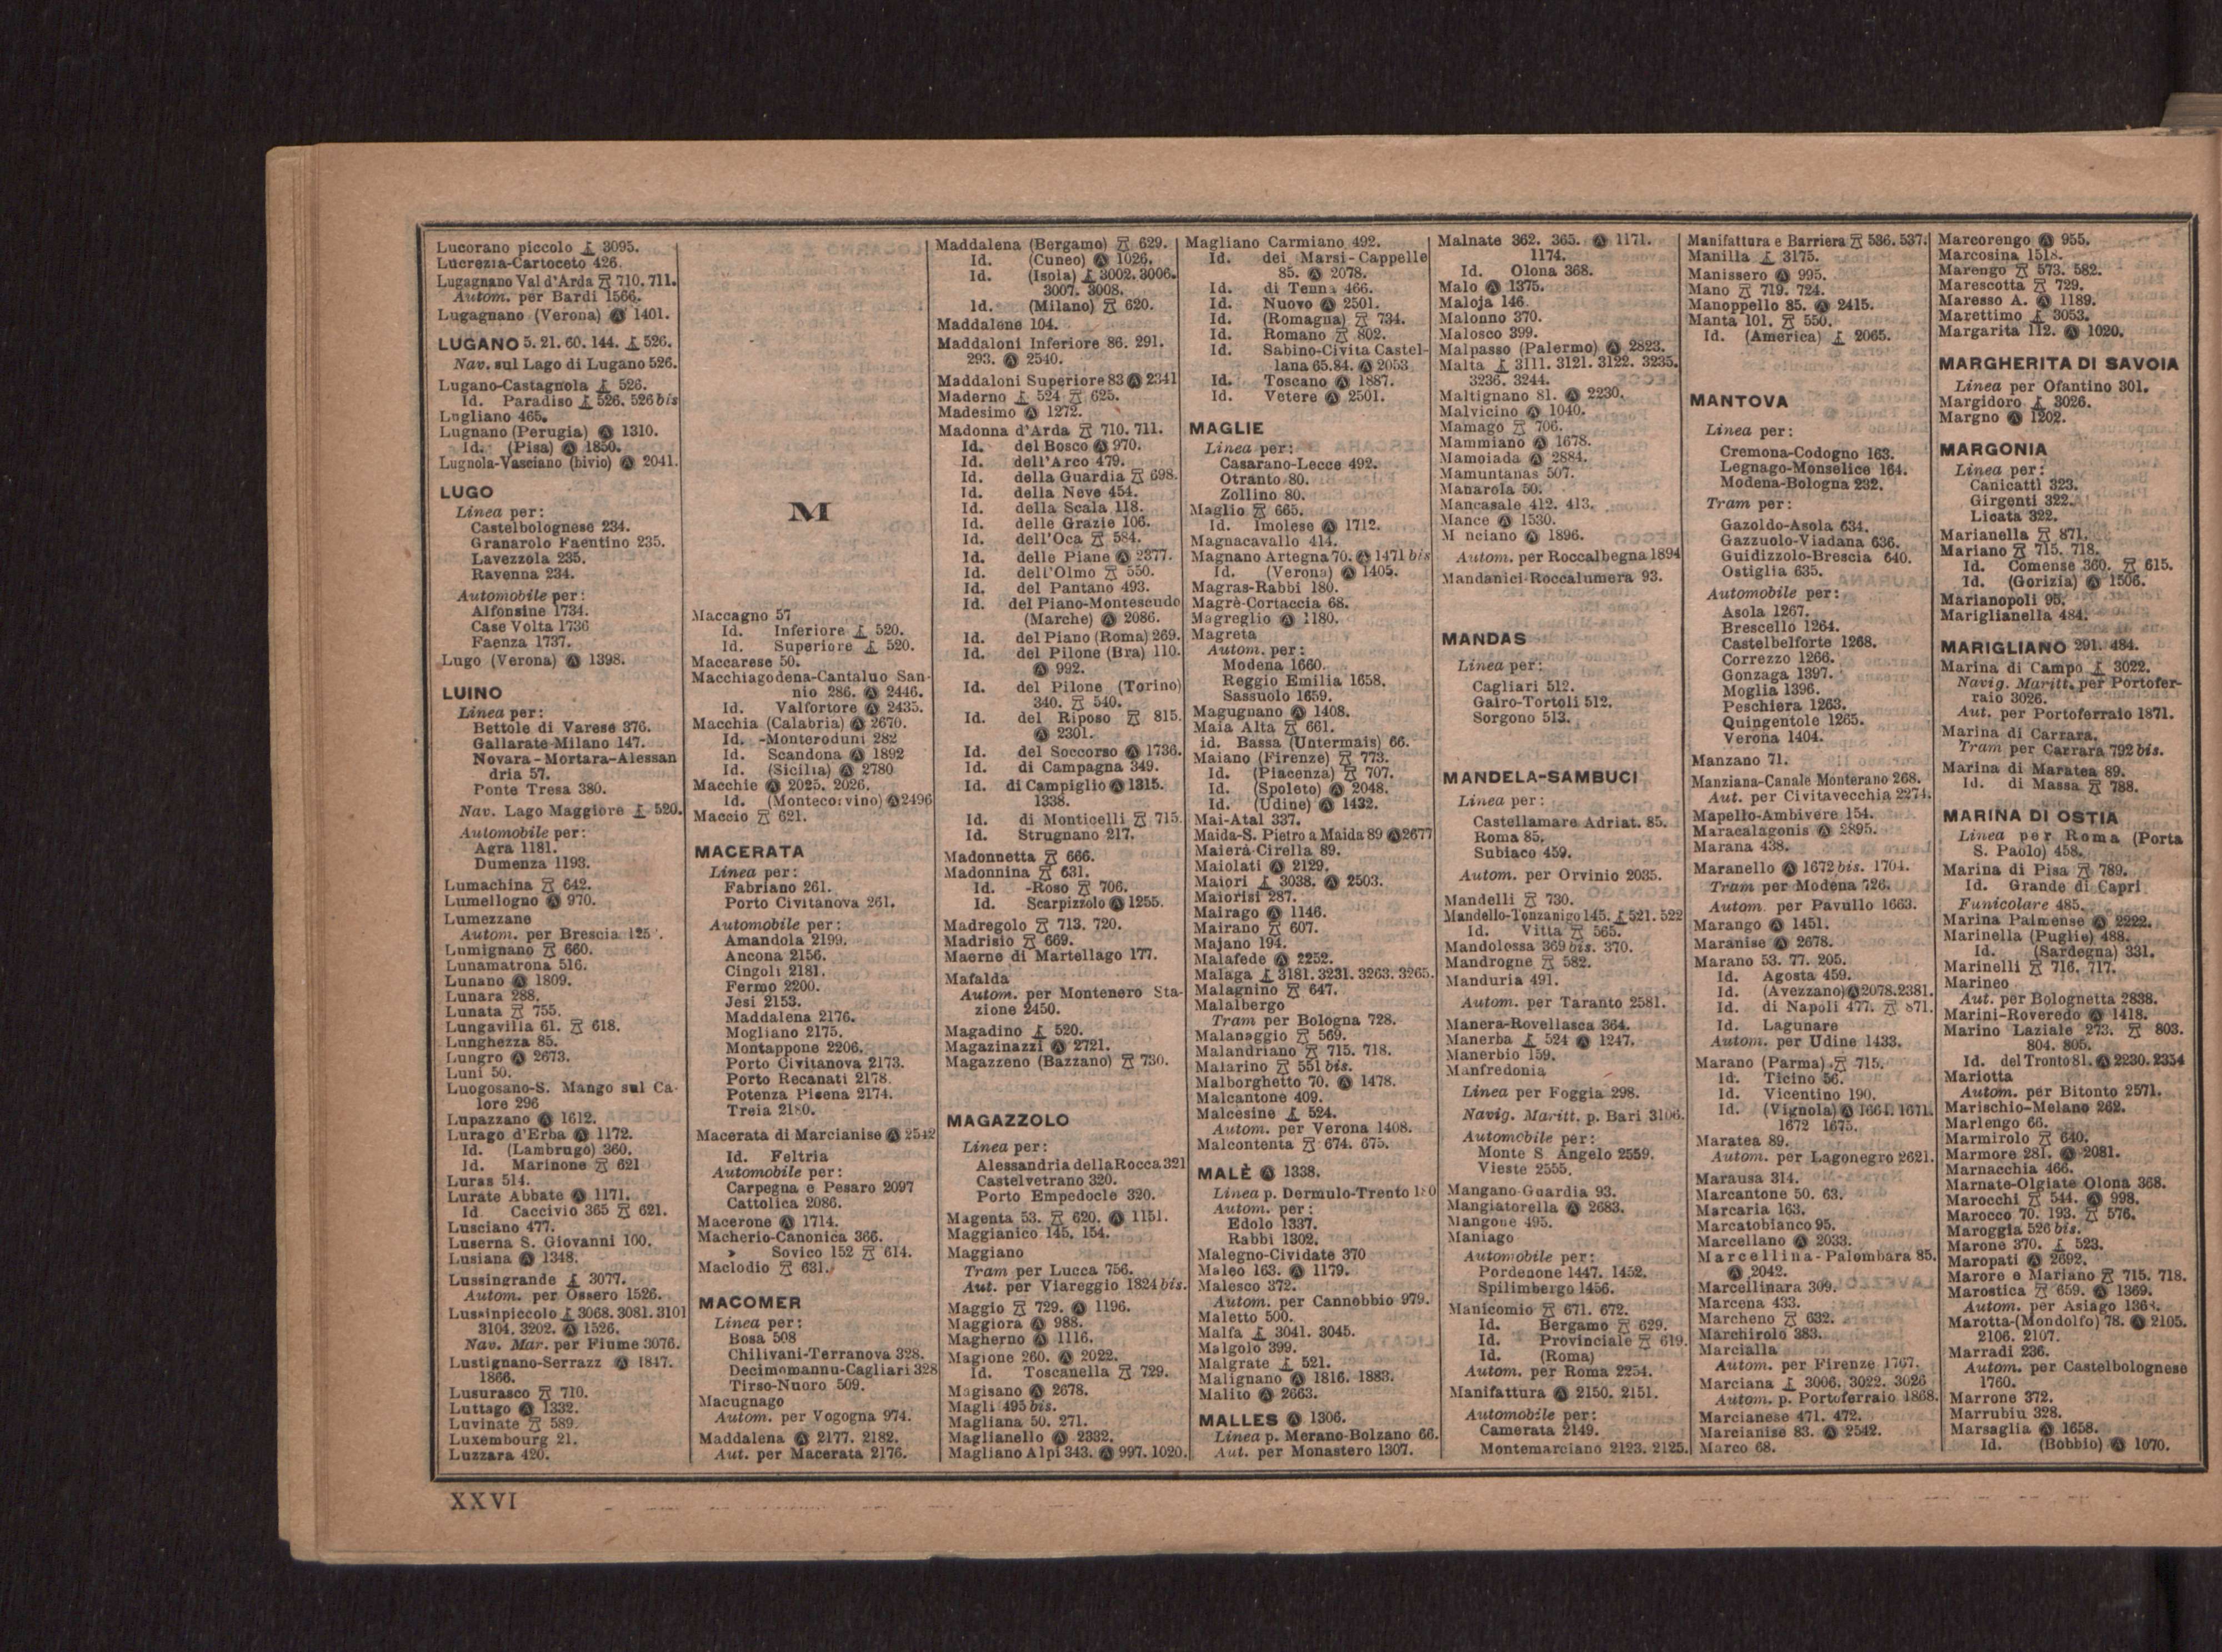 Lucorano piccolo 3095.
Lucrezia-Cartoceto 426.
Lugagnano Val d'Arda 710. 711.
Autom. per Bardi 1566.
Lugagnano (Verona) Ⓐ 1401.
LUGANO 5. 21. 60. 144. 526.
Nav. sul Lago di Lugano 526.
Lugano-Castagnola 526.
Id. Paradiso 526. 526 bis
Lugliano 465.
Lugnano (Perugia) Ⓐ 1310.
Id. (Pisa) Ⓐ 1850.
Lugnola-Vasciano (bivio) Ⓐ 2041.
LUGO
Linea per:
Castelbolognese 234.
Granarolo Faentino 235.
Lavezzola 235.
Ravenna 234.
Automobile per:
Alfonsine 1734.
Case Volta 1736
Faenza 1737.
Lugo (Verona) Ⓐ 1398.
LUINO
Linea per:
Bettole di Varese 376.
Gallarate-Milano 147.
Novara-Mortara-Alessan
dria 57.
Ponte Tresa 380.
Nav. Lago Maggiore 520.
Automobile per:
Agra 1181.
Dumenza 1193.
Lumachina 642.
Lumellogno Ⓐ 970.
Lumezzane
Autom. per Brescia 125
Lumignano 660.
Lunamatrona 516.
Lunano Ⓐ 1809.
Lunara 288.
Lunata 755.
Lungavilia 61. 618.
Lunghezza 85.
Lungro Ⓐ 2673.
Luni 50.
Luogosano-S. Mango sul Ca-
lore 296
Lupazzano Ⓐ 1612.
Lurago d'Erba Ⓐ 1172.
Id. (Lambrugo) 360.
Id. Marinone 621
Luras 514.
Lurate Abbate Ⓐ 1171.
Id. Caccivio 365 621.
Lusciano 477.
Luserna S. Giovanni 100.
Lusiana Ⓐ 1348.
Lussingrande 3077.
Autom. per Ossero 1526.
Lussinpiccolo 3068. 3081. 3101
3104. 3202. Ⓐ 1526.
Nav. Mar. per Fiume 3076.
Lustignano-Serrazz Ⓐ 1847.
1866.
Lusurasco 710.
Luttago Ⓐ 1332.
Luvinate 589.
Luxembourg 21.
Luzzara 420.
M
Maccagno 57
Id. Inferiore 520.
Id. Superiore 520.
Maccarese 50.
Macchiagodena-Cantaluo San-
nio 286. Ⓐ 2446.
Id. Valfortore Ⓐ 2435.
Macchia (Calabria) Ⓐ 2670.
Id. -Monteroduni 282
Id. Scandona Ⓐ 1892
Id. (Sicilia) Ⓐ 2780
Macchie Ⓐ 2025. 2026.
Id. (Montecorvino) Ⓐ 2496
Maccio 621.
MACERATA
Linea per:
Fabriano 261.
Porto Civitanova 261.
Automobile per:
Amandola 2199.
Ancona 2156.
Cingoli 2181.
Fermo 2200.
Jesi 2153.
Maddalena 2176.
Mogliano 2175.
Montappone 2206.
Porto Civitanova 2173.
Porto Recanati 2178.
Potenza Picena 2174.
Treia 2180.
Macerata di Marcianise Ⓐ 2542
Id. Feltria
Automobile per:
Carpegna e Pesaro 2097
Cattolica 2086.
Macerone Ⓐ 1714.
Macherio-Canonica 366.
» Sovico 152 614.
Maclodio 631.
MACOMER
Linea per:
Bosa 508
Chilivani-Terranova 328.
Decimomannu-Cagliari 328
Tirso-Nuoro 509.
Macugnago
Autom. per Vogogna 974.
Maddalena Ⓐ 2177. 2182.
Aut. per Macerata 2176.
Maddalena (Bergamo) 629.
Id. (Cuneo) Ⓐ 1026.
Id. (Isola) 3002. 3006.
3007. 3008.
Id. (Milano) 620.
Maddalene 104.
Maddaloni Inferiore 86. 291.
293. Ⓐ 2540.
Maddaloni Superiore 83 Ⓐ 2341
Maderno 524 625.
Madesimo Ⓐ 1272.
Madonna d'Arda 710. 711.
Id. del Bosco Ⓐ 970.
Id. dell'Arco 479.
Id. della Guardia 698.
Id. della Neve 454.
Id. della Scala 118.
Id. delle Grazie 106.
Id. dell'Oca 584.
Id. delle Piane Ⓐ 2377.
Id. dell'Olmo 550.
Id. del Pantano 493.
Id. del Piano-Montescudo
(Marche) Ⓐ 2086.
Id. del Piano (Roma) 269.
Id. del Pilone (Bra) 110.
Ⓐ 992.
Id. del Pilone (Torino)
340. 540.
Id. del Riposo 815.
Ⓐ 2301.
Id. del Soccorso Ⓐ 1736.
Id. di Campagna 349.
Id. di Campiglio Ⓐ 1315.
1338.
Id. di Monticelli 715.
Id. Strugnano 217.
Madonnetta 666.
Madonnina 631.
Id. -Roso 706.
Id. Scarpizzolo Ⓐ 1255.
Madregolo 713. 720.
Madrisio 669.
Maerne di Martellago 177.
Mafalda
Autom. per Montenero Sta-
zione 2450.
Magadino 520.
Magazinazzi Ⓐ 2721.
Magazzeno (Bazzano) 730.
MAGAZZOLO
Linea per:
Alessandria della Rocca 321
Castelvetrano 320.
Porto Empedocle 320.
Magenta 53. 620. Ⓐ 1151.
Maggianico 145. 154.
Maggiano
Tram per Lucca 756.
Aut. per Viareggio 1824 bis.
Maggio 729. Ⓐ 1196.
Maggiora Ⓐ 988.
Magherno Ⓐ 1116.
Magione 260. Ⓐ 2022.
Id. Toscanella 729.
Magisano Ⓐ 2678.
Magli 495 bis.
Magliana 50. 271.
Maglianello Ⓐ 2332.
Magliano Alpi 343. Ⓐ 997. 1020.
Magliano Carmiano 492.
Id. dei Marsi-Cappelle
85. Ⓐ 2078.
Id. di Tenna 466.
Id. Nuovo Ⓐ 2501.
Id. (Romagna) 734.
Id. Romano 802.
Id. Sabino-Civita Castel-
lana 65.84. Ⓐ 2053
Id. Toscano Ⓐ 1887.
Id. Vetere Ⓐ 2501.
MAGLIE
Linea per:
Casarano-Lecce 492.
Otranto 80.
Zollino 80.
Maglio 665.
Id. Imolese Ⓐ 1712.
Magnacavallo 414.
Magnano Artegna 70. Ⓐ 1471 bis
Id. (Verona) Ⓐ 1405.
Magras-Rabbi 180.
Magrè-Cortaccia 68.
Magreglio Ⓐ 1180.
Magreta
Autom. per:
Modena 1660.
Reggio Emilia 1658.
Sassuolo 1659.
Magugnano Ⓐ 1408.
Maia Alta 661.
id. Bassa (Untermais) 66.
Maiano (Firenze) 773.
Id. (Piacenza) 707.
Id. (Spoleto) Ⓐ 2048.
Id. (Udine) Ⓐ 1432.
Mai-Atal 337.
Maida-S. Pietro a Maida 89 Ⓐ 2677
Maierà-Cirella 89.
Maiolati Ⓐ 2129.
Maiori 3038. Ⓐ 2503.
Maiorisi 287.
Mairago Ⓐ 1146.
Mairano 607.
Majano 194.
Malafede Ⓐ 2252.
Malaga 3181. 3231. 3263. 3265.
Malagnino 647.
Malalbergo
Tram per Bologna 728.
Malanaggio 569.
Malandriano 715. 718.
Malarino 551 bis.
Malborghetto 70. Ⓐ 1478.
Malcantone 409.
Malcesine 524.
Autom. per Verona 1408.
Malcontenta 674. 675.
MALÈ Ⓐ 1338.
Linea p. Dermulo-Trento 180
Autom. per:
Edolo 1337.
Rabbi 1302.
Malegno-Cividate 370
Maleo 163. Ⓐ 1179.
Malesco 372.
Autom. per Cannobbio 979.
Maletto 500.
Malfa 3041. 3045.
Malgolo 399.
Malgrate 521.
Malignano Ⓐ 1816. 1883.
Malito Ⓐ 2663.
MALLES Ⓐ 1306.
Linea p. Merano-Bolzano 66.
Aut. per Monastero 1307.
Malnate 362. 365. Ⓐ 1171.
1174.
Id. Olona 368.
Malo Ⓐ 1375.
Maloja 146.
Malonno 370.
Malosco 399.
Malpasso (Palermo) Ⓐ 2823.
Malta 3111. 3121. 3122. 3235.
3236. 3244.
Maltignano 81. Ⓐ 2230.
Malvicino Ⓐ 1040.
Mamago 706.
Mammiano Ⓐ 1678.
Mamoiada Ⓐ 2884.
Mamuntanas 507.
Manarola 50.
Mancasale 412. 413.
Mance Ⓐ 1530.
M nciano Ⓐ 1896.
Autom. per Roccalbegna 1894
Mandanici-Roccalumera 93.
MANDAS
Linea per:
Cagliari 512.
Gairo-Tortoli 512.
Sorgono 513.
MANDELA-SAMBUCI
Linea per:
Castellamare Adriat. 85.
Roma 85.
Subiaco 459.
Autom. per Orvinio 2035.
Mandelli 730.
Mandello-Tonzanigo 145. 521. 522
Id. Vitta 565.
Mandolossa 369 bis. 370.
Mandrogne 582.
Manduria 491.
Autom. per Taranto 2581.
Manera-Rovellasca 364.
Manerba 524 Ⓐ 1247.
Manerbio 159.
Manfredonia
Linea per Foggia 298.
Navig. Maritt. p. Bari 3106.
Automobile per:
Monte S Angelo 2559.
Vieste 2555.
Mangano-Guardia 93.
Mangiatorella Ⓐ 2683.
Mangone 495.
Maniago
Automobile per:
Pordenone 1447. 1452.
Spilimbergo 1456.
Manicomio 671. 672.
Id. Bergamo 629.
Id. Provinciale 619.
Id. (Roma)
Autom. per Roma 2254.
Manifattura Ⓐ 2150. 2151.
Automobile per:
Camerata 2149.
Montemarciano 2123. 2125.
Manifattura e Barriera 536. 537.
Manilla 3175.
Manissero Ⓐ 995.
Mano 719. 724.
Manoppello 85. Ⓐ 2415.
Manta 101. 550.
Id. (America) 2065.
MANTOVA
Linea per:
Cremona-Codogno 163.
Legnago-Monselice 164.
Modena-Bologna 232.
Tram per:
Gazoldo-Asola 634.
Gazzuolo-Viadana 636.
Guidizzolo-Brescia 640.
Ostiglia 635.
Automobile per:
Asola 1267.
Brescello 1264.
Castelbelforte 1268.
Correzzo 1266.
Gonzaga 1397.
Moglia 1396.
Peschiera 1263.
Quingentole 1265.
Verona 1404.
Manzano 71.
Manziana-Canale Monterano 268.
Aut. per Civitavecchia 2274.
Mapello-Ambivere 154.
Maracalagonis Ⓐ 2895.
Marana 438.
Maranello Ⓐ 1672 bis. 1704.
Tram per Modena 726.
Autom. per Pavullo 1663.
Marango Ⓐ 1451.
Maranise Ⓐ 2678.
Marano 53. 77. 205.
Id. Agosta 459.
Id. (Avezzano) Ⓐ 2078.2381.
Id. di Napoli 477. 871.
Id. Lagunare
Autom. per Udine 1433.
Marano (Parma) 715.
Id. Ticino 56.
Id. Vicentino 190.
Id. (Vignola) Ⓐ 1661. 1671.
1672 1675.
Maratea 89.
Autom. per Lagonegro 2621.
Marausa 314.
Marcantone 50. 63.
Marcaria 163.
Marcatobianco 95.
Marcellano Ⓐ 2033.
Marcellina-Palombara 85.
Ⓐ 2042.
Marcellinara 309.
Marcena 433.
Marcheno 632.
Marchirolo 383.
Marcialla
Autom. per Firenze 1767.
Marciana 3006. 3022. 3026
Autom. p. Portoferraio 1868.
Marcianese 471. 472.
Marcianise 83. Ⓐ 2542.
Marco 68.
Marcorengo Ⓐ 955.
Marcosina 1518.
Marengo 573. 582.
Marescotta 729.
Maresso A. Ⓐ 1189.
Marettimo 3053.
Margarita 112. Ⓐ 1020.
MARGHERITA DI SAVOIA
Linea per Ofantino 301.
Margidoro 3026.
Margno Ⓐ 1202.
MARGONIA
Linea per:
Canicattì 323.
Girgenti 322.
Licata 322.
Marianella 871.
Mariano 715. 718.
Id. Comense 360. 615.
Id. (Gorizia) Ⓐ 1506.
Marianopoli 95.
Mariglianella 484.
MARIGLIANO 291. 484.
Marina di Campo 3022.
Navig. Maritt. per Portofer-
raio 3026.
Aut. per Portoferraio 1871.
Marina di Carrara.
Tram per Carrara 792 bis.
Marina di Maratea 89.
Id. di Massa 788.
MARINA DI OSTIA
Linea per Roma (Porta
S. Paolo) 458.
Marina di Pisa 789.
Id. Grande di Capri
Funicolare 485.
Marina Palmense Ⓐ 2222.
Marinella (Puglie) 488.
Id. (Sardegna) 331.
Marinelli 716. 717.
Marineo
Aut. per Bolognetta 2838.
Marini-Roveredo Ⓐ 1418.
Marino Laziale 273. 803.
804. 805.
Id. del Tronto 81. Ⓐ 2230. 2354
Mariotta
Autom. per Bitonto 2571.
Marischio-Melano 262.
Marlengo 66.
Marmirolo 640.
Marmore 281. Ⓐ 2081.
Marnacchia 466.
Marnate-Olgiate Olona 368.
Marocchi 544. Ⓐ 998.
Marocco 70. 193. 576.
Maroggia 526 bis.
Marone 370. 523.
Maropati Ⓐ 2692.
Marore e Mariano 715. 718.
Marostica 659. Ⓐ 1369.
Autom. per Asiago 1368.
Marotta-(Mondolfo) 78. Ⓐ 2105.
2106. 2107.
Marradi 236.
Autom. per Castelbolognese
1760.
Marrone 372.
Marrubiu 328.
Marsaglia Ⓐ 1658.
Id. (Bobbio) Ⓐ 1070.
XXVI